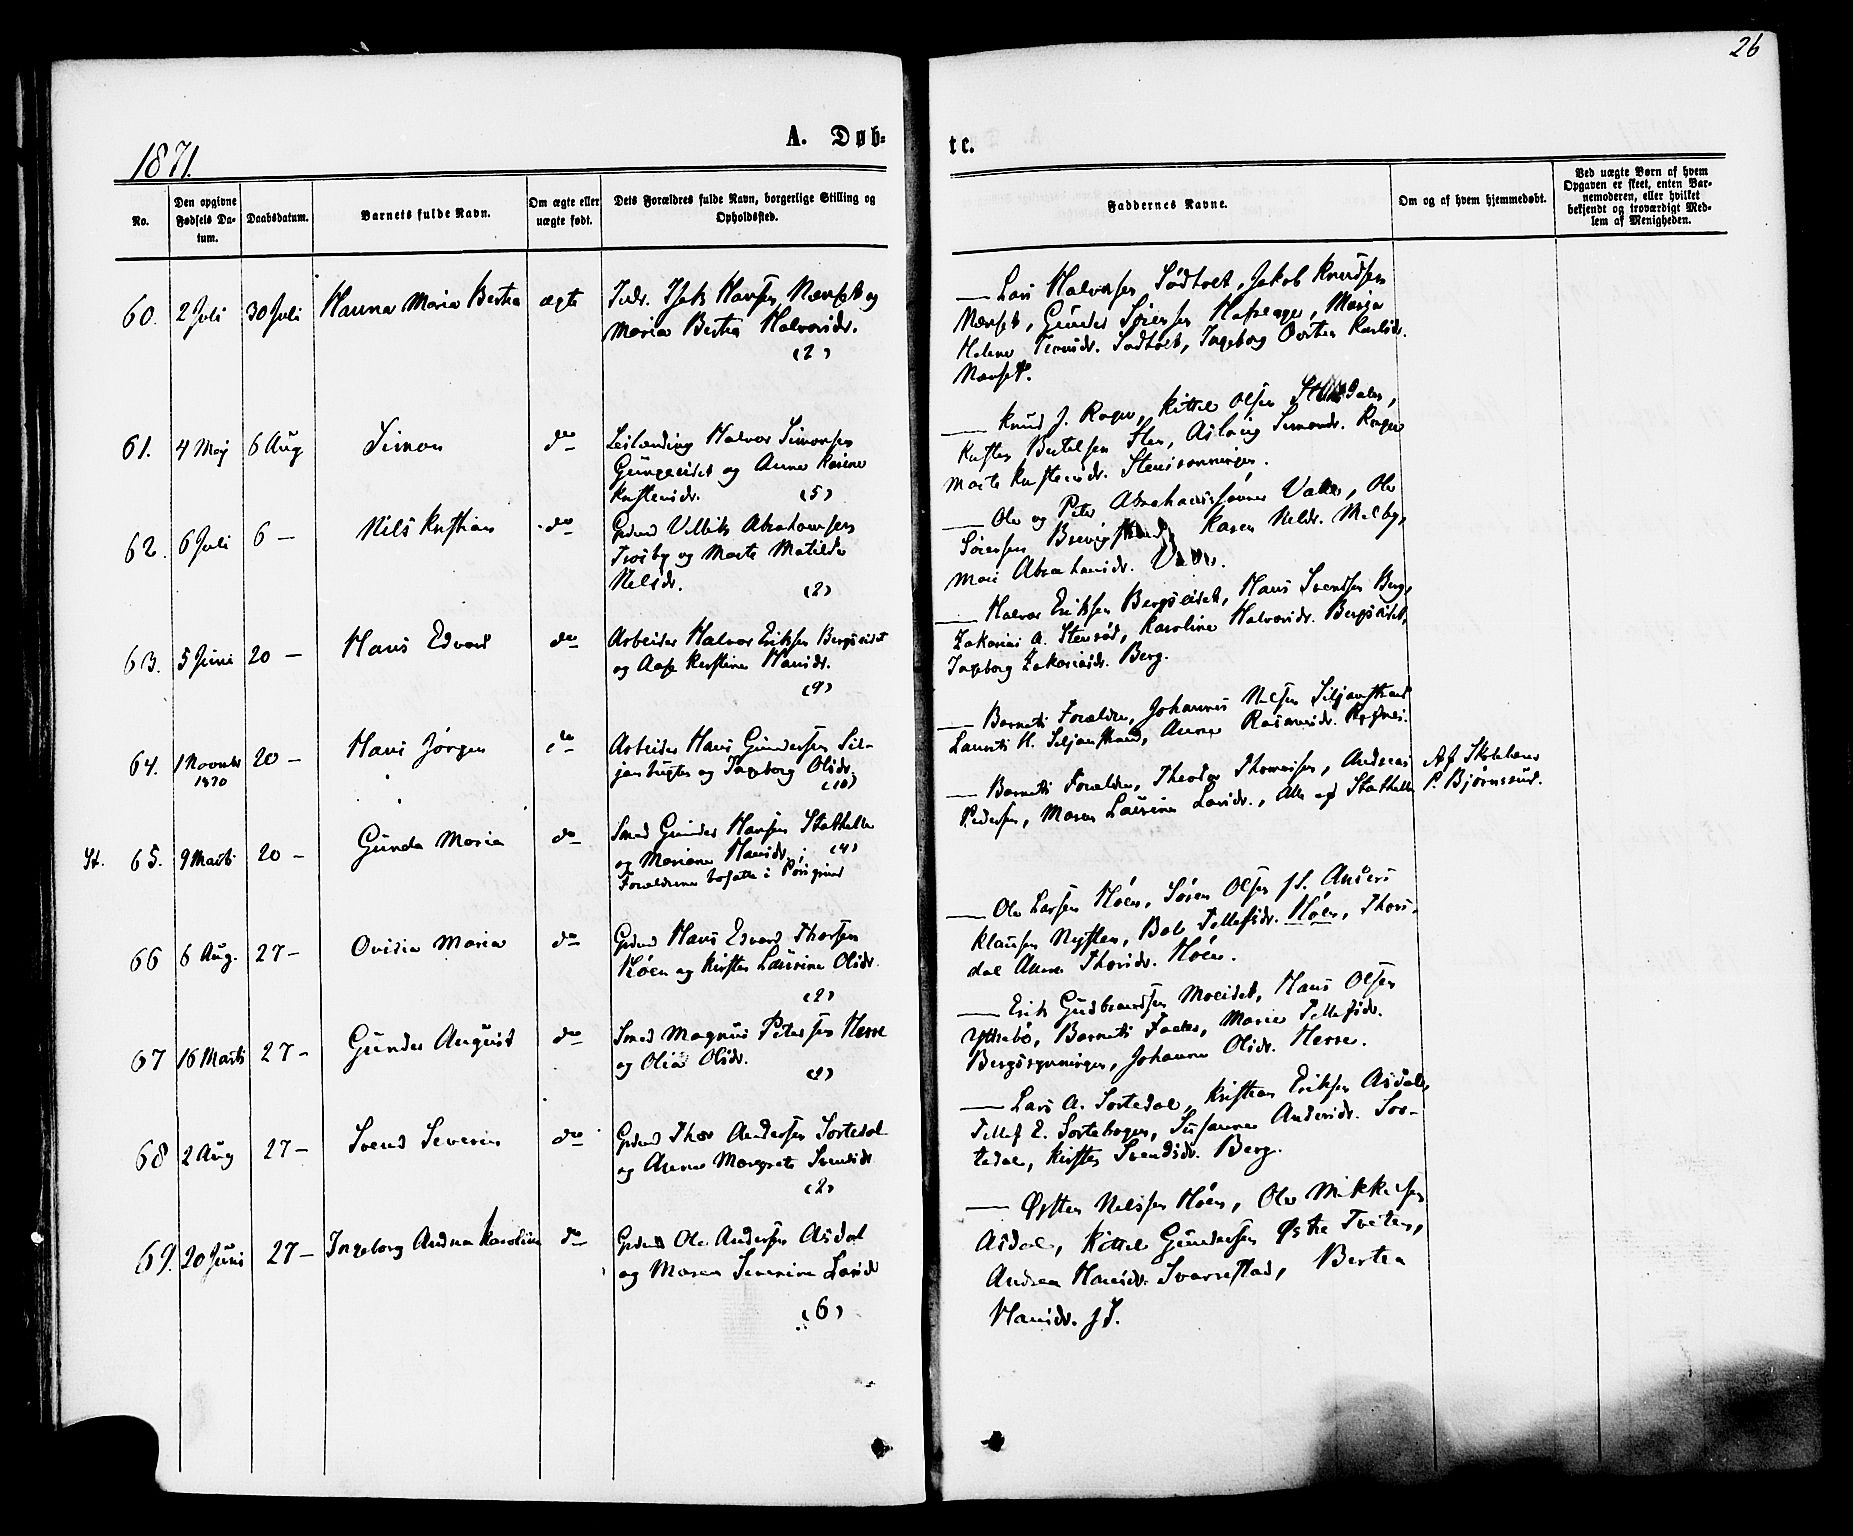 26
1871.
A. Døb-
te.
No.
Den opgivne Fødsels Da-
tum.
Daabsdatum.
Barnets fulde Navn.
Om ægte eller
uægte født.
Dets Forældres fulde Navn, borgerlige Stilling og
Opholdssted.
Faddernes Navne.
Om og af hvem hjemmedøbt.
Ved uægte Børn af hvem
Opgaven er skeet, enten Bar-
nemoderen, eller hvilket
bekjendt og troværdigt Med-
lem af Menigheden.
60. 2 Juli 30 Juli Hanna Maria Bertea ægte Inds. Isak Hansen Nævset og
Maria Bertea Halvorsdr.
(2)
— Lars Halvorsen Sødtvet, Jakob Knudsen
Nævset, Gunder Sørensen
Helene Sødtvet, Ingeborg Karlsdr.
Nævset.
61. 4 Maj 6 Aug Simon do Leilænding Halvor Simonsen
og Anne Karine
Kristensdr. (5)
— Knud J. Rogn, Kittel Olsen
Kristen Bertelsen Sten, Aslaug Simonsdr. Rogn
Marte Kristensdr.
62. 6 Juli 6 — Nils Kristian do Grdmd Abrahamsen
Trosby og Marte Matilde
Nelsdr. (2)
— Ole og Peter Abrahamssønner Valle, Ole
Sørensen Karen Nelsdr. Melby,
Mari Abrahamsdr. Valle.
63. 5 Juni 20 — Hans Edvard do Arbeider Halvor Eriksen Bergseidet
og Aase Kirstine Hansdr.
(9)
— Halvor Eriksen Bergseidet, Hans Svendsen Berg,
Zakarias A. Stensrød, Karoline Halvorsdr. Bergseidet,
Ingeborg Zakariasdr. Berg.
64. 1 Novembr 1870 20 — Hans Jørgen do Arbeider Hans Gundersen Sil-
jan og Ingeborg Olsdr.
(10)
— Barnets Forældre, Johannes Nelsen Siljanstrand
Laurits H. Siljanstrand, Anne
St. 65. 9 Marts 20 — Gunda Maria do Smed Gunder Hansen Stathelle
og Mariane Hansdr.; (4)
Forældrene bosatte i Porsgrund
— Barnets Forældre, Theodor Thomassen, Andreas
Pedersen, Maren Laurine Larsdr., Alle af Stathelle
Af Skolelærer
P. Bjørnssund.
66 6 Aug. 27 — Ovidia Maria do Grdmd Hans Edvard Thorsen
Høen og Kirsten Laurine Olsdr.
(2)
— Ole Larsen Høen, Søren Olsen js. Anders
Klausen Nysten, Bol Tellefsdr. Høen, Thors-
dal Anne Thorsdr. Høen.
67 16 Marts 27 — Gunder August do Smed Magnus Petersen Herre
og Olea Olsdr.
— Erik Gudbrandsen Moeidet, Hans Olsen
Yttrebø, Barnets Fader, Marie Tellefsdr.
Johanne Olsdr. Herre.
68 2 Aug 27 — Svend Severin do Grdmd Thor Andersen Sortedal
og Anne Margrete Svendsdr.
(2)
— Lars A. Sortedal, Kristian Eriksen Asdal,
Tellef E. Sortebogen, Susanne Andersdr. Sor-
tedal, Kirsten Svendsdr. Berg.
69. 20 Juni 27 — Ingeborg Andrea Karoline do Grdmd Ole Andersen Asdal
og Maren Severine Larsdr
(6)
— Østen Nelssen Høen, Ole Mikkelsen
Asdal, Kittel Gundersen Østre Tveten,
Andrea Hansdr. Svarrestad, Bertea
Hansdr. js.